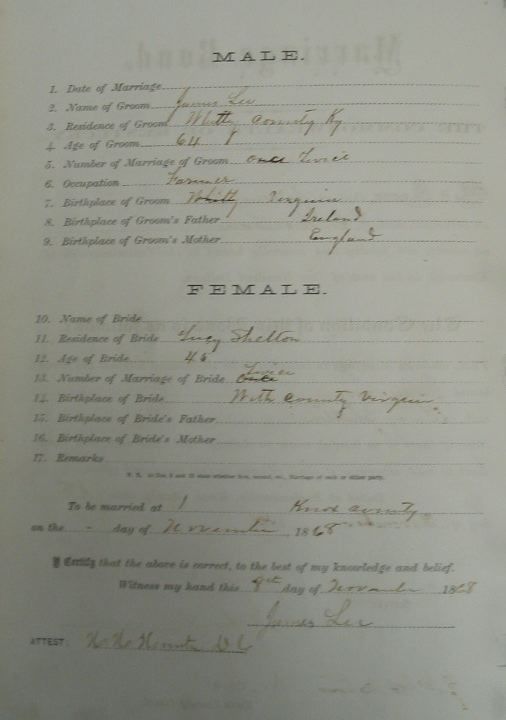 MALE.
1. Date of Marriage
2. Name of Groom James Lee
3. Residence of Groom Whitly County Ky
4. Age of Groom 64
5. Number of Marriage of Groom once Twice
6. Occupation Farmer
7. Birthplace of Groom Whitly Virginia
8. Birthplace of Groom's Father Ireland
9. Birthplace of Groom's Mother England
FEMALE.
10. Name of Bride
11. Residence of Bride Lucy Shelton
12. Age of Bride 46
13. Number of Marriage of Bride once Twice
14. Birthplace of Bride With County Virginia
15. Birthplace of Bride's Father
16. Birthplace of Bride's Mother
17. Remarks
To be married at Knox County
on the - day of November 1868
I Certify that the above is correct, to the best of my knowledge and belief.
Witness my hand this 9th day of November 1868
James Lee
ATTEST: D C